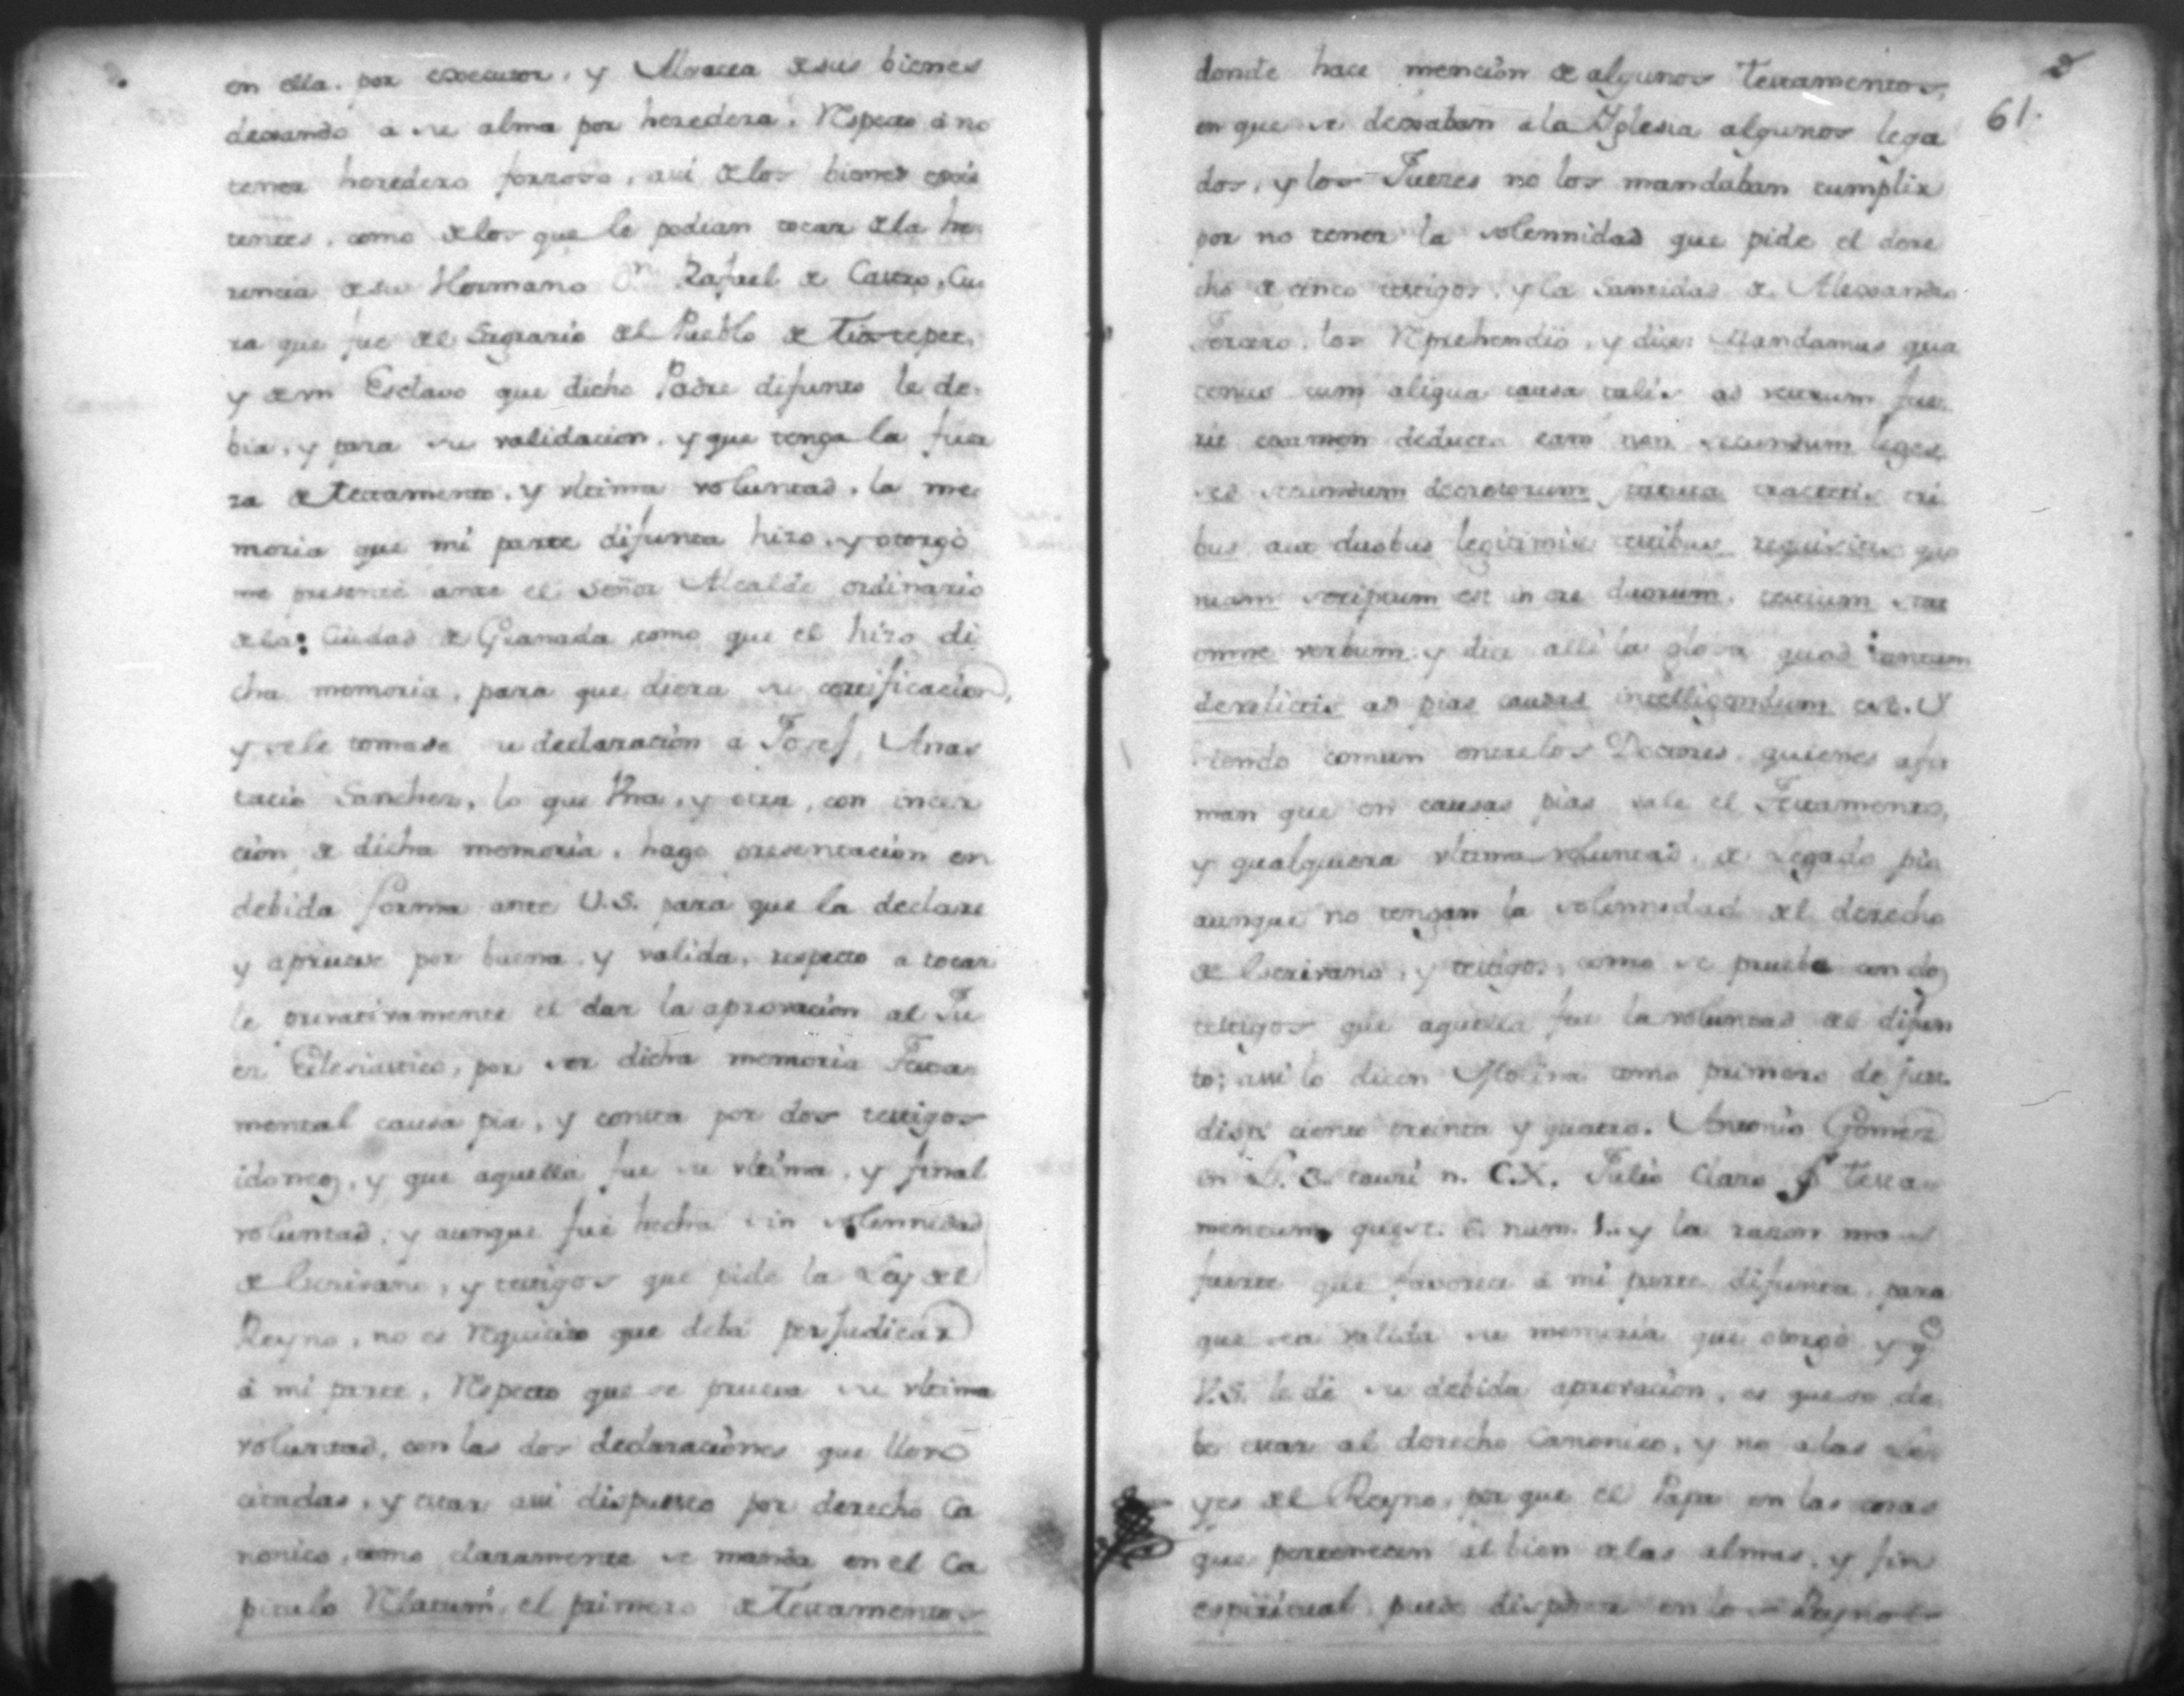 en ella. por executor, y Alvacea de sus bienes
dexando a su alma por heredera. Respecto á no
tener heredero forzoso, asi de los bienes exis
tentes, como de los que le podian tocar de la he
rencia de su Hermano Dn. Rafael de Castro, Cu
ra que fue del Sagrario del Pueblo de
y de un Esclavo que dicho Padre difunto le de
bia, y para su validacion, y que tenga la fuer
za de testamento, y ultima voluntad, la me
moria que mi parte difunta hizo, y otorgó
me presenté ante el Señor Alcalde ordinario
de la Ciudad de Granada como que el hizo di
cha memoria, para que diera su certificacion,
y se le tomase su declaracion a Josef Anas
tacio Sanchez, lo que Una, y otra, con incer
cion de dicha memoria, hago presentacion en
debida forma ante U.S. para que la declare
y apruebe por buena, y valida, respecto a tocar
le privativamente el dar la aprovacion al Ju
ez Eclesiastico, por ser dicha memoria Testa
mental causa pia, y consta por dos testigos
idoneos, y que aquella fue su ultima, y final
voluntad, y aunque fué hecha sin solennidad
de Escrivano, y testigos que pide la Ley del
Reyno, no es requicito que deba perjudicar
á mi parte, Respecto que se prueva su ultima
voluntad, con las dos declaraciones que llevo
citadas, y estar asi dispuesto por derecho Ca
nonico, como claramente se manda en el Ca
pitulo Relatum, el primero de Testamentos
donde hace mencion de algunos Testamentos,
en que se dexaban a la Yglesia algunos lega
dos, y los Juezes no los mandaban cumplir
por no tener la solennidad que pide el dere
cho de cinco testigos, y la Santidad de Alexandro
Tercero, los Reprehendió, y dice: Mandamus qua
tenus cum aliqua causa talis ad vestrum fue
rit examen deducta eam non secundum leges,
sed secundum decretorum statuta tractetis tri
bus, aut duobus legitimis testibus requisitis quo
niam scriptum est in ore duorum, testium stat
omne verbum: y dice alli la glosa quod tantum
derelictis ad pias causas intelligendum est. Y
siendo comun entre los Doctores, quienes afir
man que en causas pias vale el Testamento,
y qualquiera ultima voluntad, de Legado pio
aunque no tengan la solennidad del derecho
de Escrivano, y testigos, como se pruebe con dos
testigos que aquella fue la voluntad del difun
to; assi lo dicen Molina tomo primero de just.
disp. ciento treinta y quatro. Antonio Gomez
in L. 3. tauri n. C.X. Julio Claro § Testa
mentum quest. 6. num. 1. y la razon mas
fuerte que favorece á mi parte difunta, para
que sea valida su memoria que otorgó y qe
V.S. le dé su debida aprovacion, es que se de
be estar al derecho Canonico, y no a las Le
yes del Reyno, por que el Papa en las cosas
que pertenecen al bien de las almas, y fin
espiritual puede disponer en los Reynos
61.